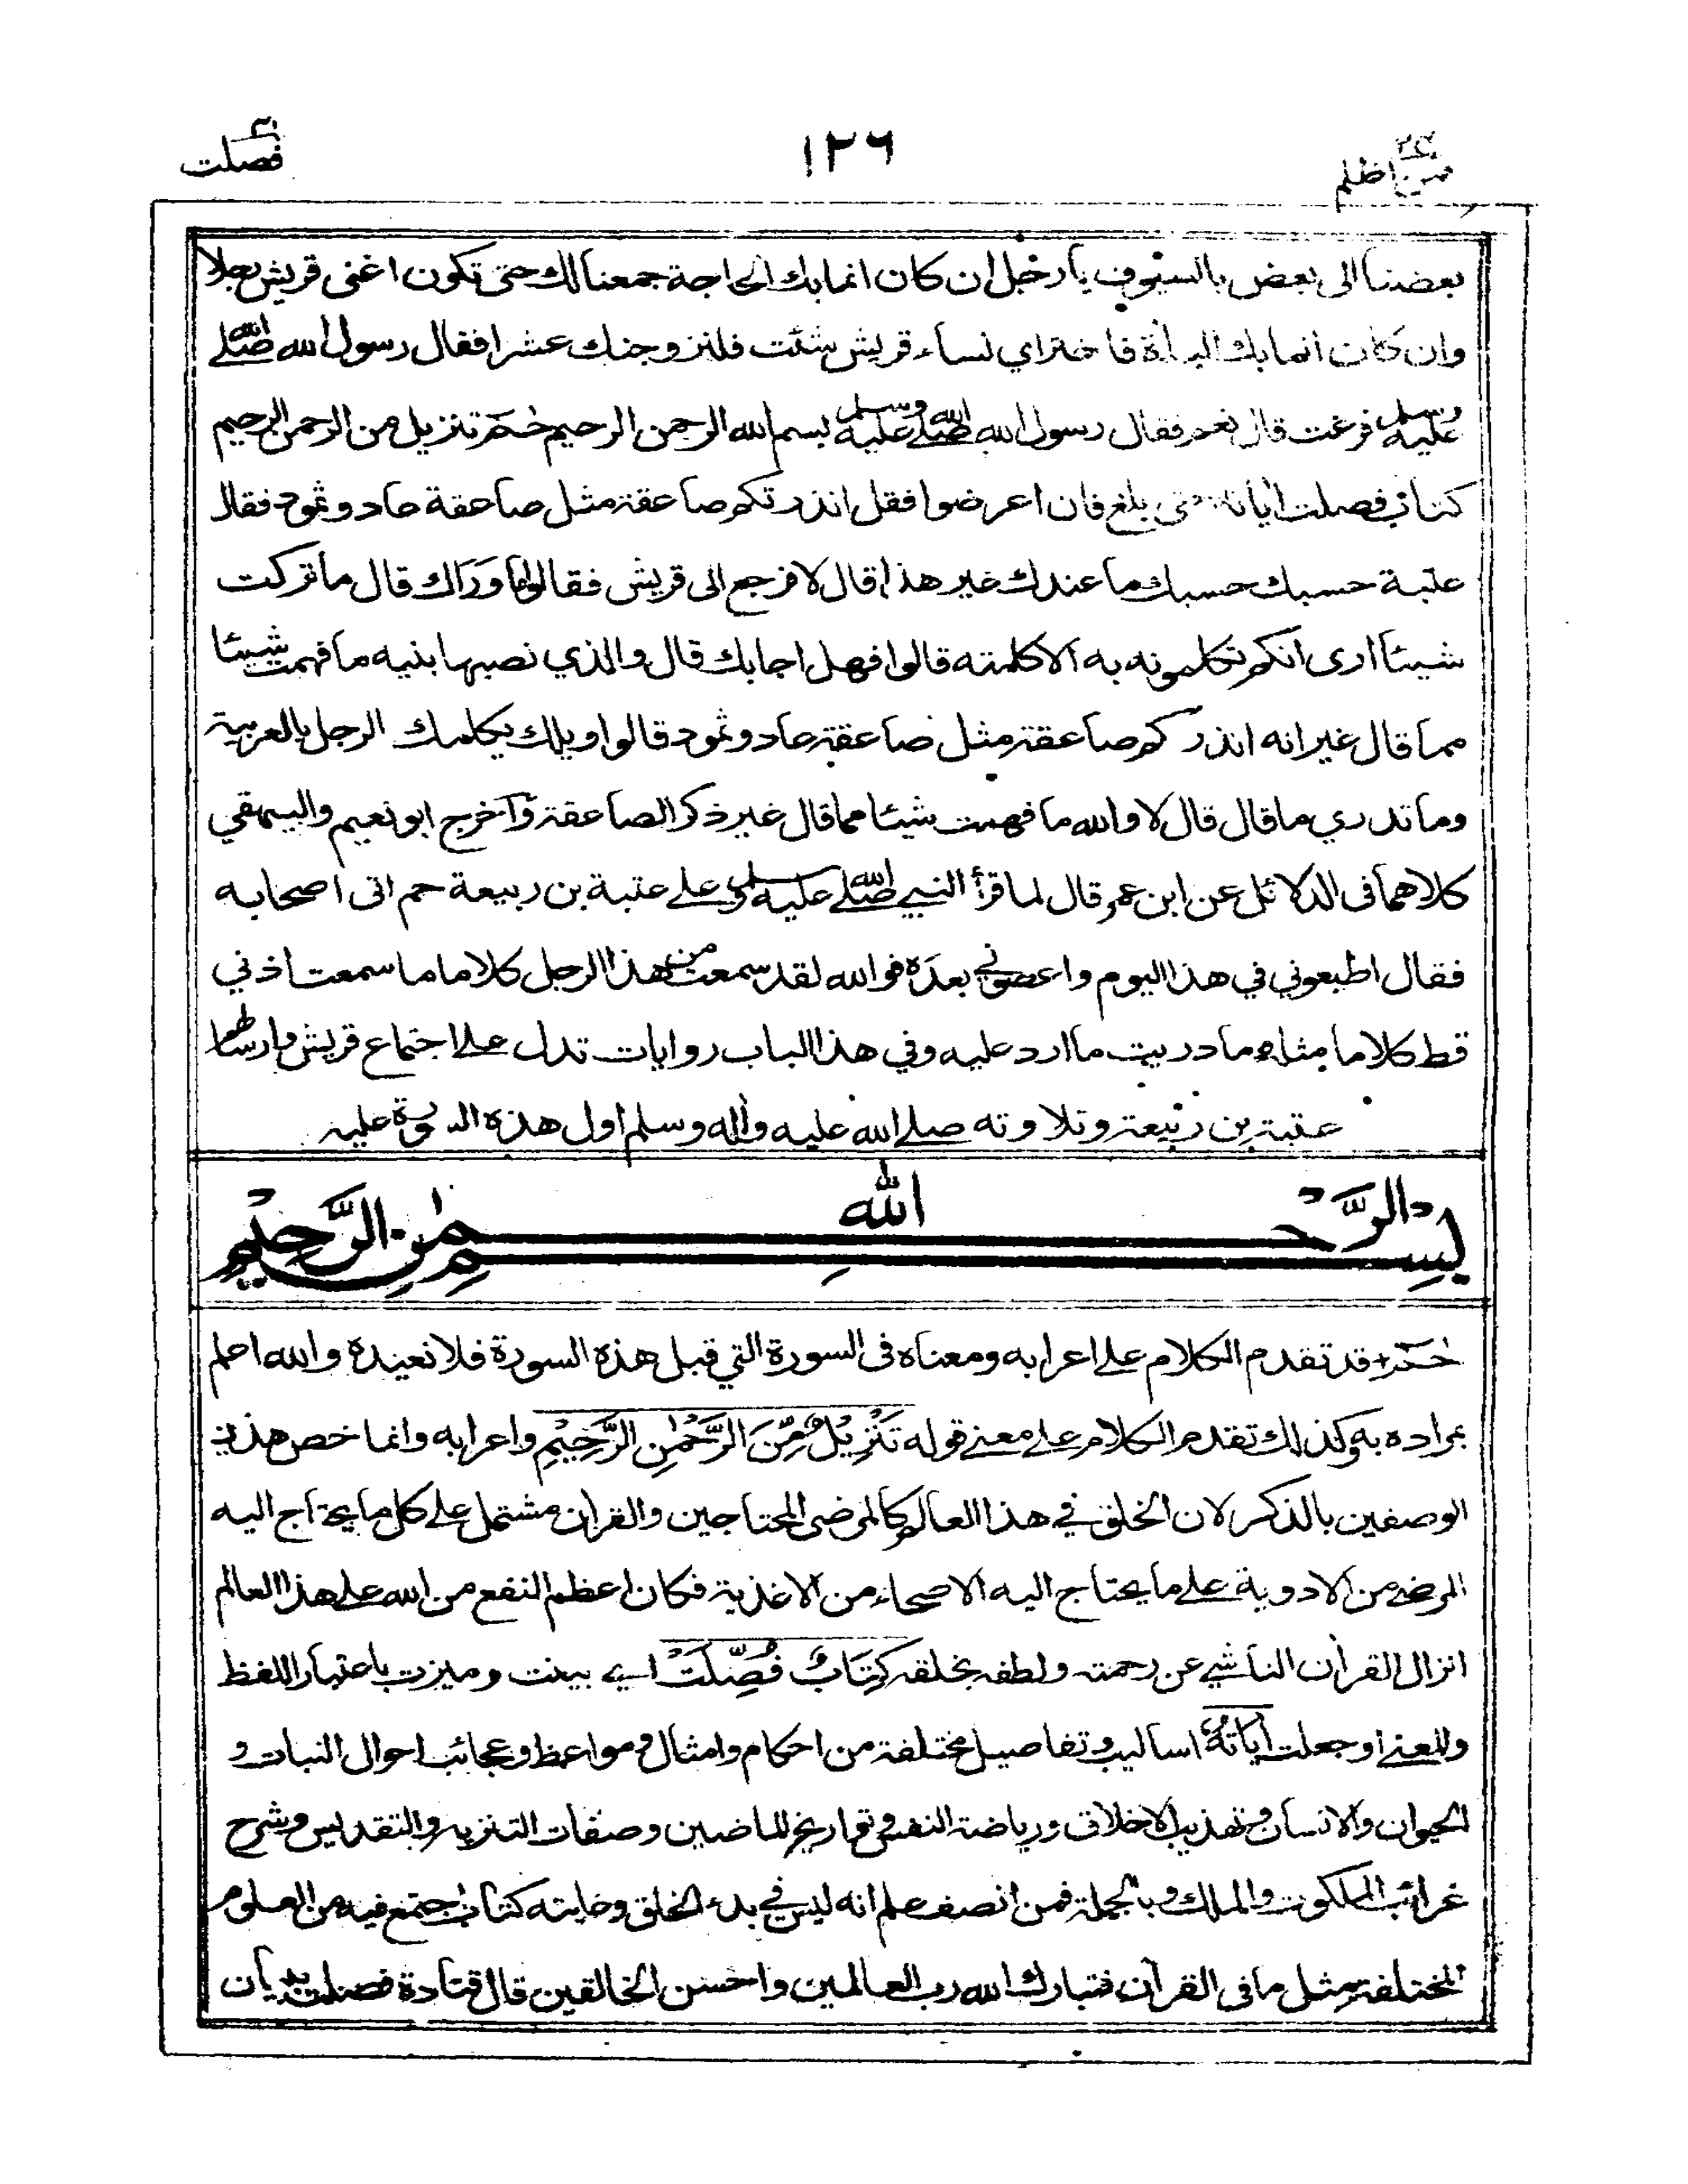 فصلت ١٢٦ فمن اظلم
بعضنا الى بعض بالسيوف يا رجل ان كان انما بك الحاجة جمعنا لك حتى تكون اغنى قريش رجلا
وان كان انما بك الباءة فاختر اي نساء قريش شئت فلنزوجنك عشرا فقال رسول الله صلى الله
عليه وسلم فرغت قال نعم فقال رسول الله صلى الله عليه وسلم بسم الله الرحمن الرحيم حم تنزيل من الرحمن الرحيم
كتاب فصلت اياته حتى بلغ فان اعرضوا فقل انذرتكم صاعقة مثل صاعقة عاد وثمود فقال
عتبة حسبك حسبك ما عندك غير هذا قال لا فرجع الى قريش فقالوا ما وراك قال ما تركت
شيئا ارى انكم تكلمونه به الا كلمته قالوا فهل اجابك قال والذي نصبها بنيه ما فهمت شيئا
مما قال غير انه انذركم صاعقة مثل صاعقة عاد وثمود قالوا ويلك يكلمك الرجل بالعربية
وما تدري ما قال قال لا والله ما فهمت شيئا مما قال غير ذكر الصاعقة وآخرج ابو نعيم والبيهقي
كلاهما فى الدلائل عن ابن عمر قال لما قرأ النبي صلى الله عليه وسلم على عتبة بن ربيعة حم اتى اصحابه
فقال اطيعوني في هذا اليوم واعصوني بعده فوالله لقد سمعت من هذا الرجل كلاما ما سمعت اذني
قط كلاما مثله وما دريت ما ارد عليه وفي هذا الباب روايات تدل على اجتماع قريش وارسالهم
عتبة بن ربيعة وتلاوته صلى الله عليه وأله وسلم اول هذه السورة عليه
بسم الله الرحمن الرحيم
حم قد تقدم الكلام على اعرابه ومعناه فى السورة التي قبل هذه السورة فلا نعيده والله اعلم
بمراده به وكذلك تقدم الكلام على معنى قوله تَنْزِيْلٌ مِّنَ الرَّحْمٰنِ الرَّحِيْمِ واعرابه وانما خص هذين
الوصفين بالذكر لان الخلق في هذا العالم كالمرضى المحتاجين والقران مشتمل على كل ما يحتاج اليه
المرضى من الادوية على ما يحتاج اليه الاصحاء من الاغذية فكان اعظم النفع من الله على هذا العالم
انزال القرأن الناشي عن رحمته ولطفه بخلقه كِتَابٌ فُصِّلَتْ اي بينت وميزت باعتبار اللفظ
والمعنى او جعلت أيَاتُهٗ اساليب وتفاصيل مختلفة من احكام وامثال ومواعظ وعجائب احوال النبات و
الحيوان والانسان وتهذيب الاخلاق ورياضة النفس وتواريخ الماضين وصفات التنزيه والتقديس وشرح
غرائب الملكوت والملك وبالجملة فمن انصف علم انه ليس في بدء الخلق وغايته كتاب اجتمع فيه من العلوم
المختلفة مثل ما فى القرآن فتبارك الله رب العالمين واحسن الخالقين قال قتادة فصلت ببيان